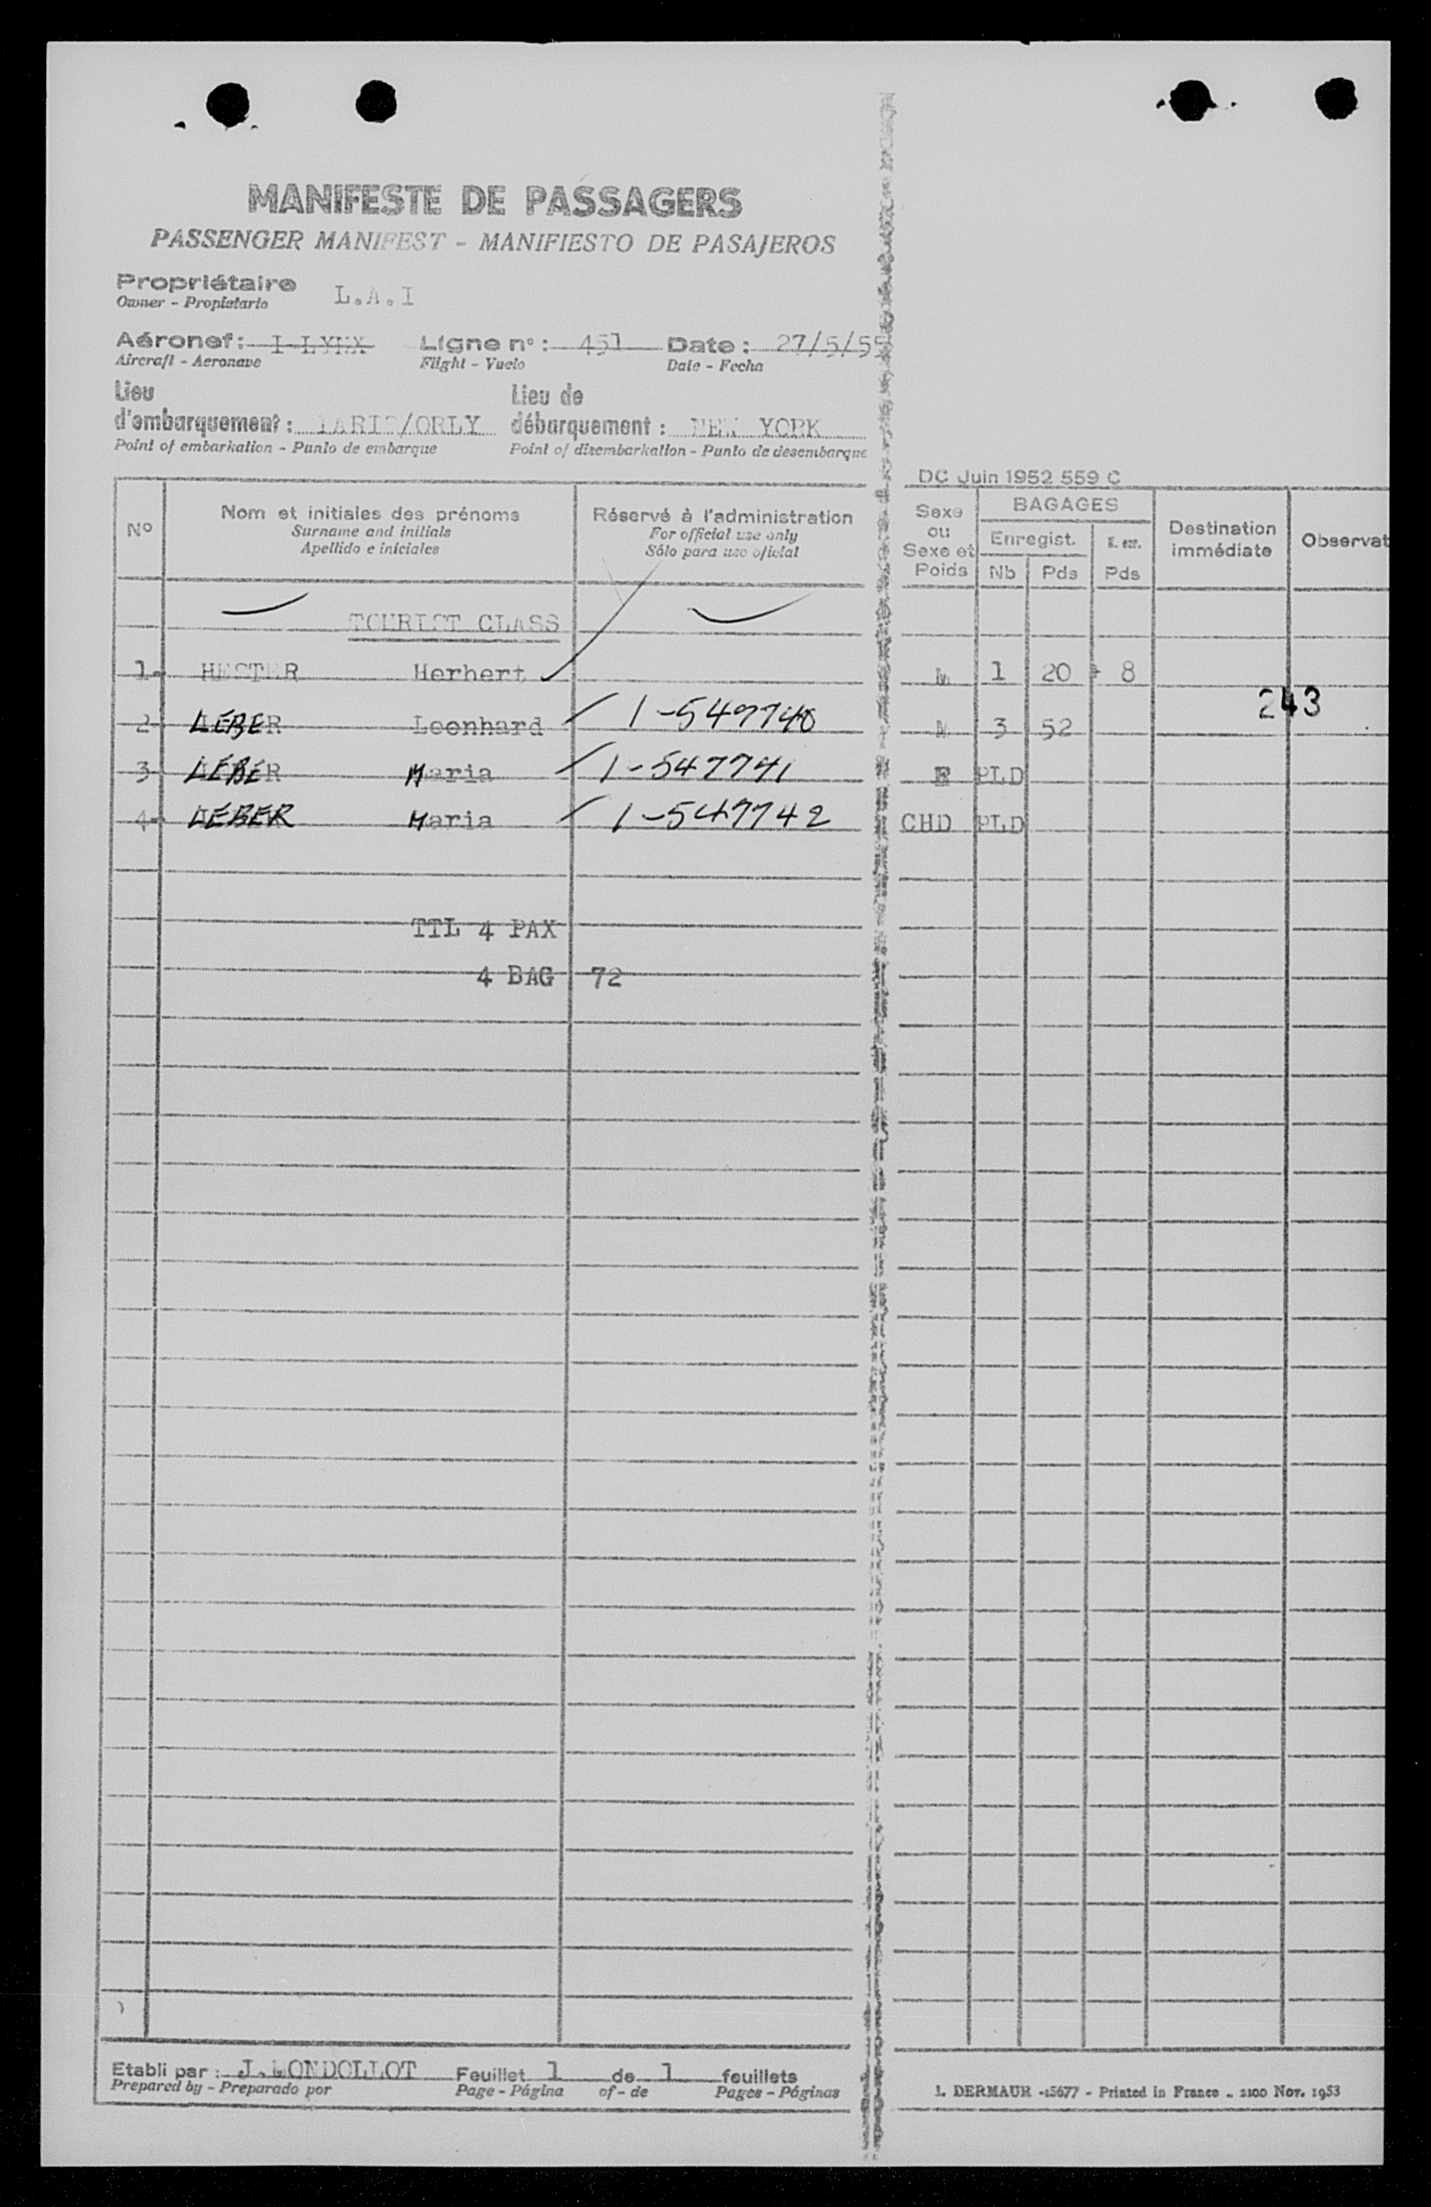 MANIFESTE DE PASSAGERS
PASSENGER MANIFEST - MANIFIESTO DE PASAJEROS
Propriétaire L.A.I
Owner - Propietario
Aéronef : Ligne n° : 451 Date : 27/5/55
Aircraft - Aeronave Flight - Vuelo Date - Fecha
Lieu Lieu de
d'embarquement : PARIS/ORLY débarquement : NEW YORK
Point of embarkation - Punto de embarque Point of disembarkation - Punto de desembarque
DC Juin 1952 559 C
N° Nom et initiales des prénoms Réservé à l'administration Sexe ou Sexe et Poids BAGAGES Destination immédiate Observat
Surname and initials For official use only Enregist.
Apellido e iniciales Sólo para uso oficial Nb Pds Pds
TOURIST CLASS
1- HESTER Herhert M 1 20 8
243
2- LEBER Leonhard 1-547740 M 3 52
3- LEBER Maria 1-547741 F PLD
4- LEBER Maria 1-547742 CHD PLD
TTL 4 PAX
4 BAG 72
Etabli par : Feuillet 1 de 1 feuillets
Prepared by - Preparado por Page - Página of - de Pages - Páginas
I. DERMAUR -15677 - Printed in France - 2100 Nov. 1953